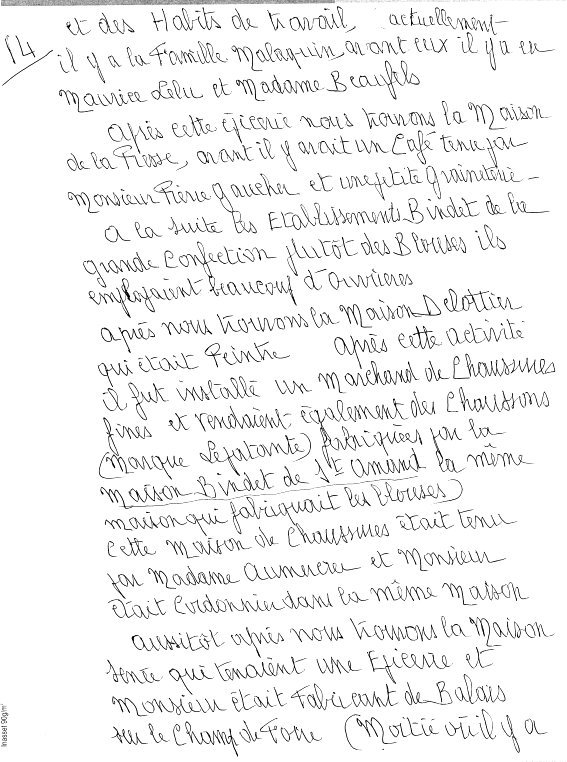 14
et des Habits de travail, actuellement
il y a la Famille Malaquin, avant eux il y a eu
Maurice Lelu et Madame Beaufels
Après cette épicerie nous trouvons la Maison
de la Presse, avant il y avait un Café tenu par
Monsieur Pierre Gaucher et une petite Graineterie -
A la suite les Etablissements Bindet de la
grande Confection plutôt des Blouses ils
employaient beaucoup d'ouvrières
après nous trouvons la Maison Delottier
qui était Peintre après cette activité
il fut installé un Marchand de Chaussures
fines et vendaient également des Chaussons
(Marque Lépatante) fabriquées par la
Maison Bindet de St Amand la même
maison qui fabriquait les blouses)
Cette Maison de Chaussures était tenu
par Madame et Monsieur
était Cordonnier dans la même Maison
aussitôt après nous trouvons la Maison
Senée qui tenaient une Epicerie et
Monsieur était Fabricant de Balais
sur le Champ de Foire (Moitié où il y a
Inasset 90g/m²